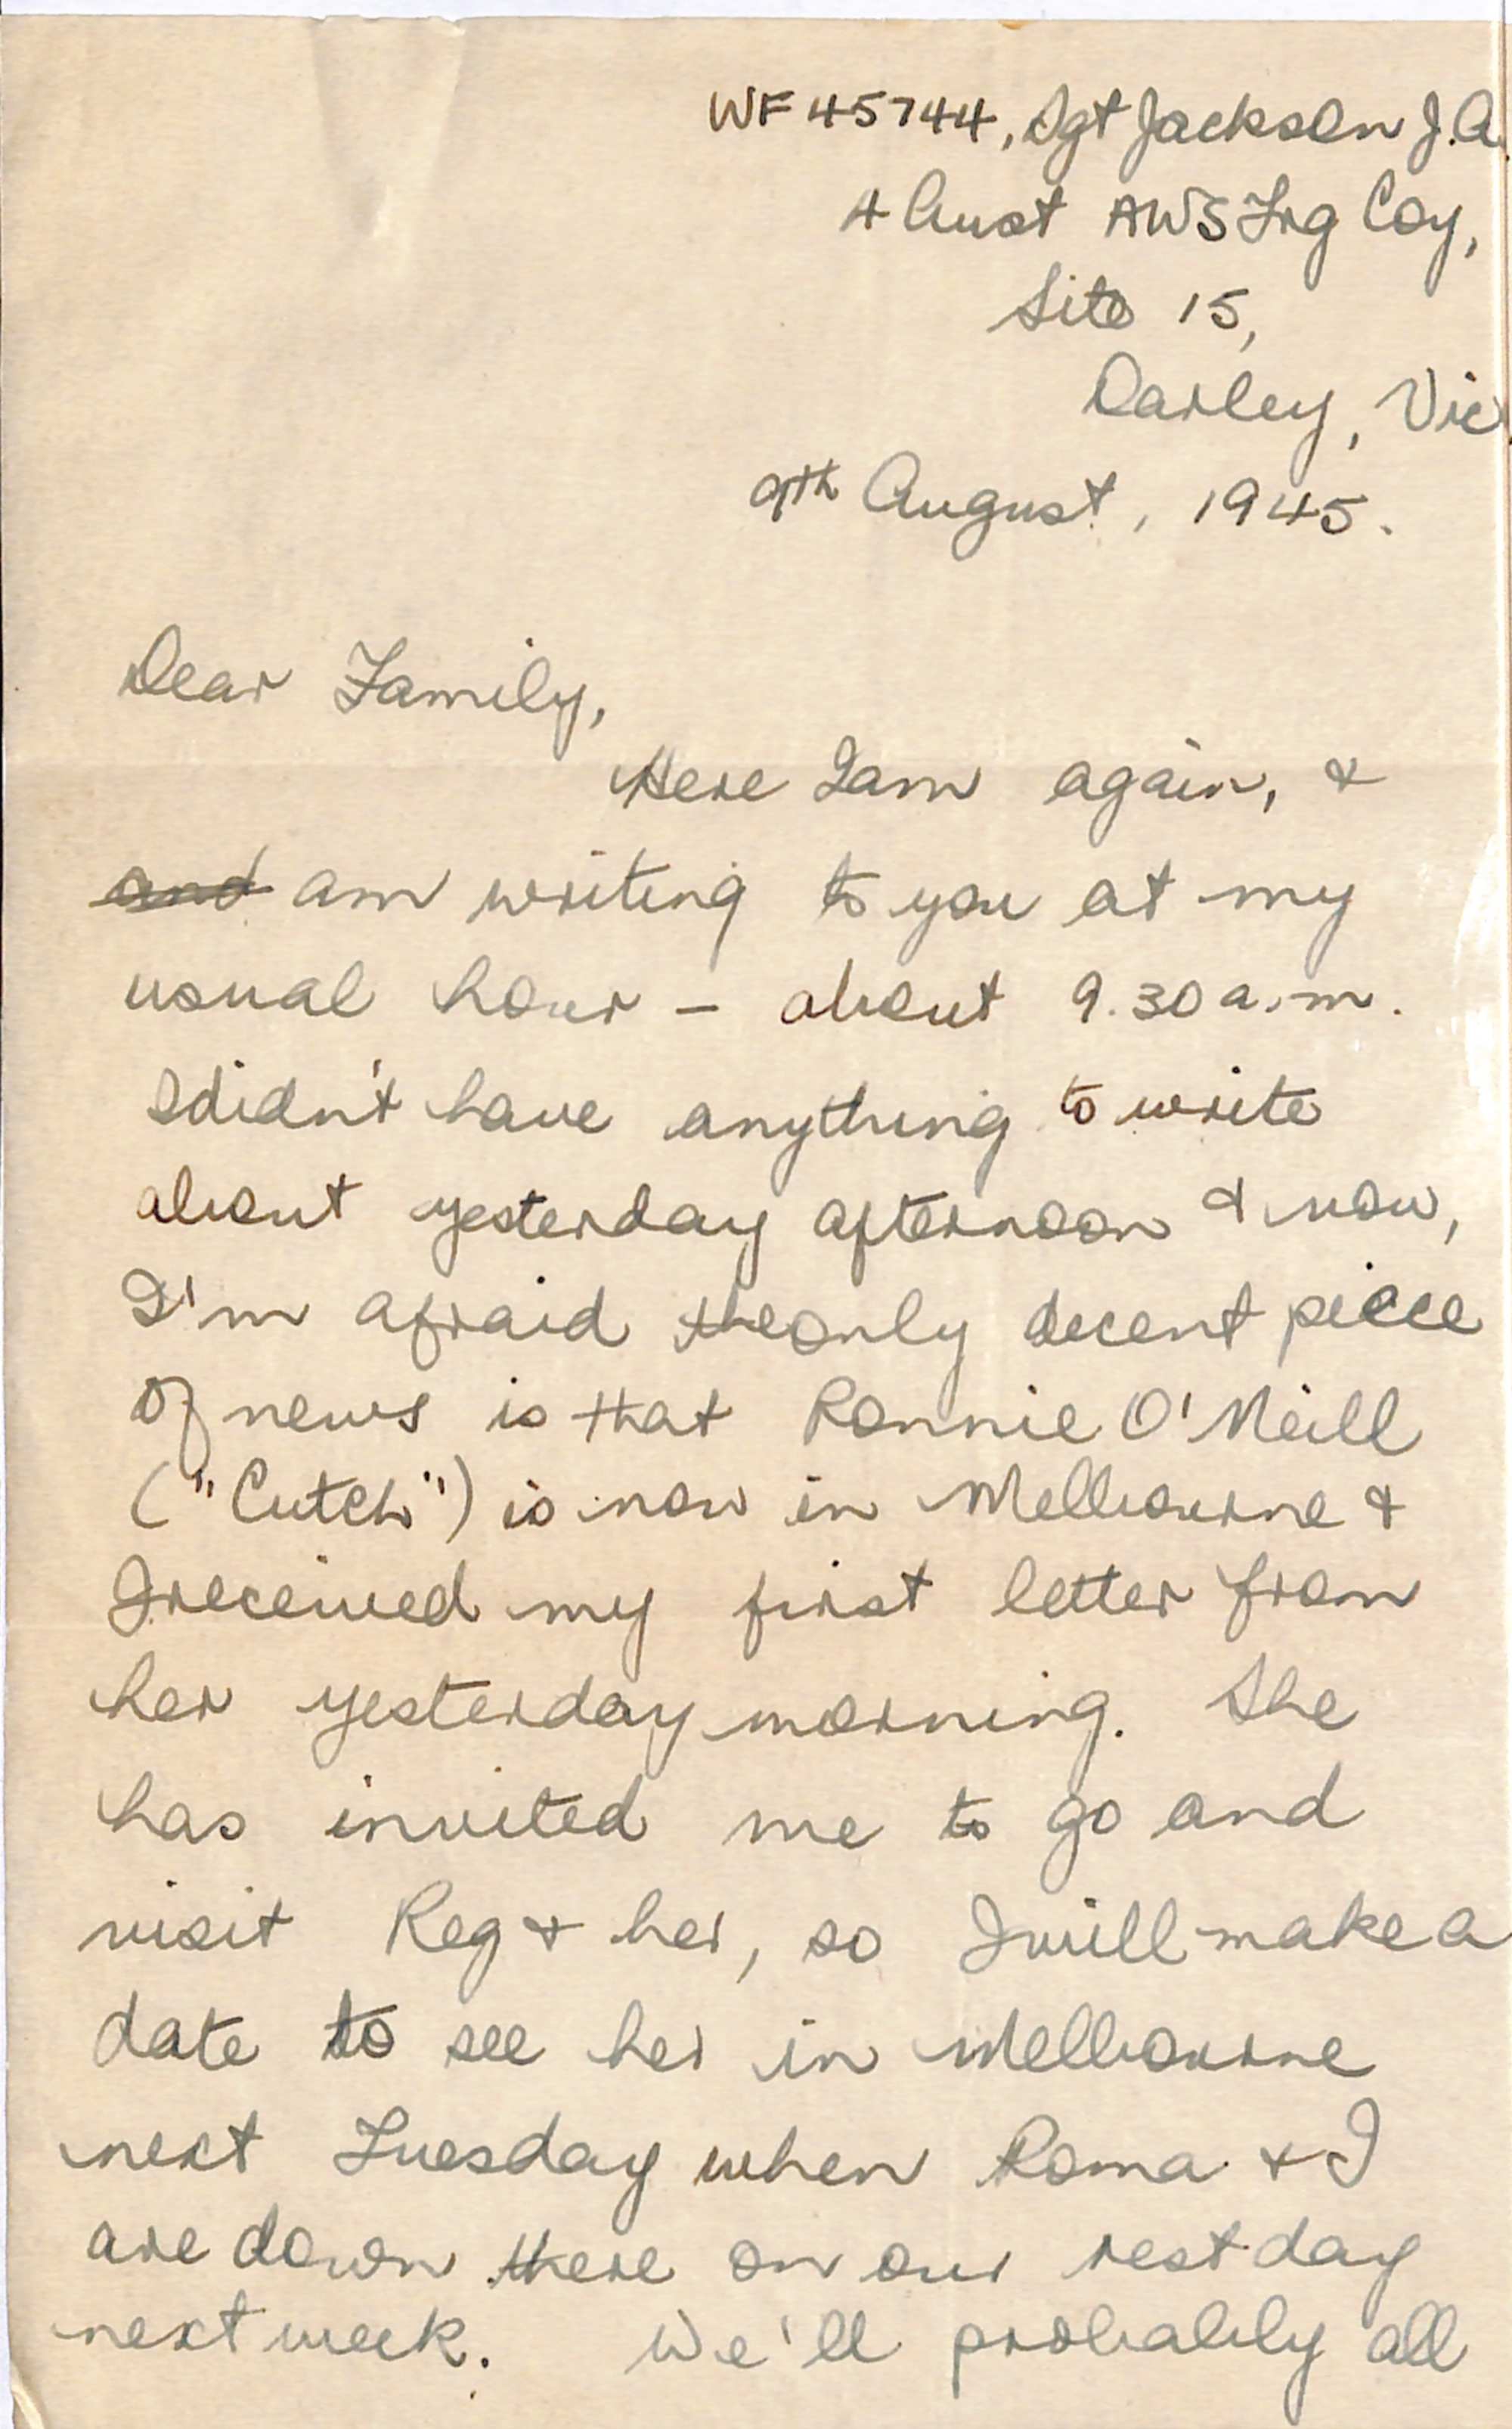 WF45744, Sgt Jackson J.A.
4 Aust AWS Trg Coy,
Site 15,
Darley, Vic
9th August, 1945.
Dear Family,
Here I am again, &
and am writing to you at my
usual hour - about 9.30 a.m.
I didn't have anything to write
about yesterday afternoon & now,
I'm afraid the only decent piece
of news is that Ronnie O'Neill
("Cutch") is now in Melbourne &
I received my first letter from
her yesterday morning. She
has invited me to go and
visit Reg & her, so I will make a
date to see her in Melbourne
next Tuesday when Roma & I
are down there on our rest day
next week. We'll probably all